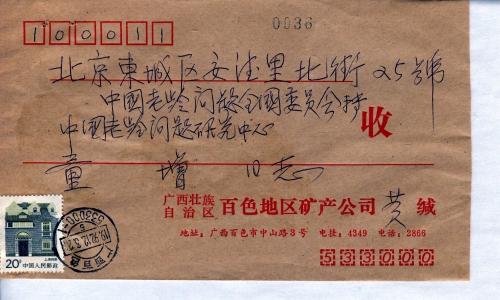 0036
100011
北京東城区安德里北街25號
中国老龄问题全国委员会转
中国老龄问题研究中心
收
童 增 同志
广西壮族
自治区 百色地区矿产公司 黄 缄
地址：广西百色市中山路3号 电挂：4349 电话：2866
533000
20分 中国人民邮政
广西百色